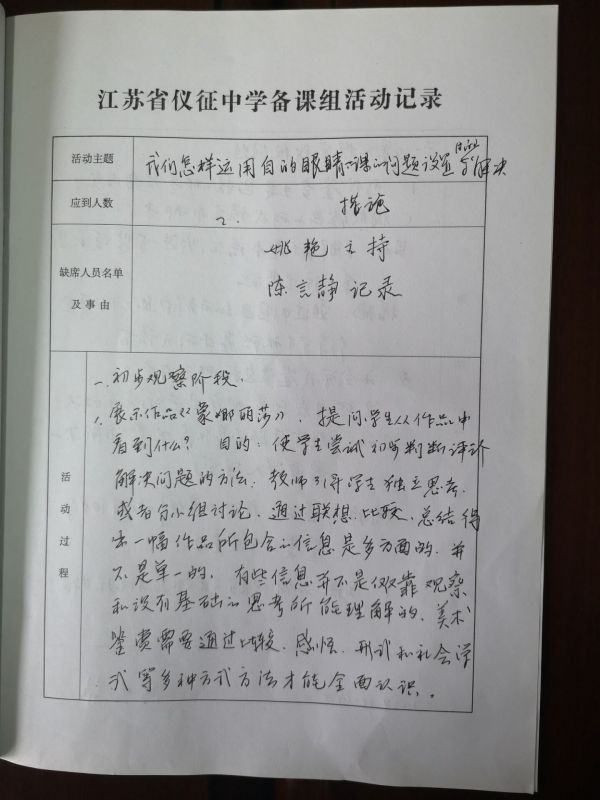 江苏省仪征中学备课组活动记录
活动主题
我们怎样运用自的眼睛心课的问题设置 解决
应到人数
2.
措施
缺席人员名单
及事由
姚艳主持
陈言静记录
活动过程
一、初步观察阶段.
1、展示作品《蒙娜丽莎》, 提问:学生从作品中
看到什么? 目的:使学生尝试初步判断评价
解决问题的方法. 教师引导学生独立思考.
或者分小组讨论, 通过联想、比较、总结得
出一幅作品所包含的信息是多方面的, 并
不是单一的, 有些信息并不是仅靠观察
和没有基础的思考所能理解的, 美术
鉴赏需要通过比较、感悟、形式和社会学
式等多种方式方法才能全面认识.